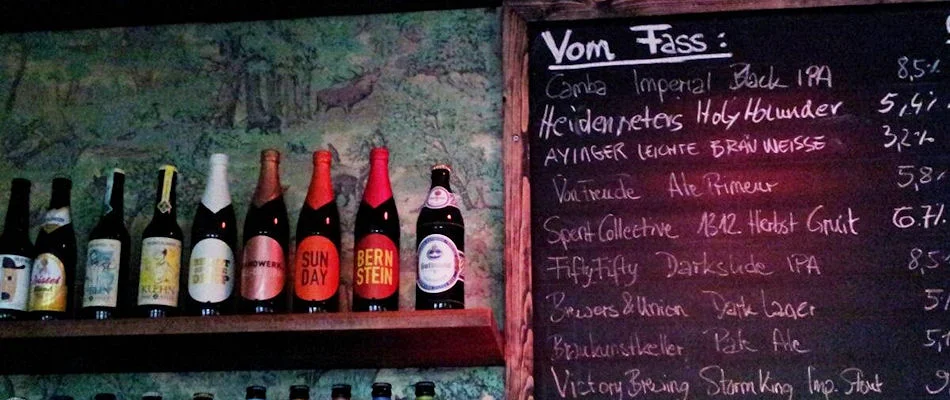 SUN
DAY
BERN
STEIN
Vom Fass:
Camba Imperial Black IPA 8,5%
Heidenpeters Holy Holunder 5,4%
AYINGER LEICHTE BRÄUWEISSE 3,2%
Von Freude Ale Primeur 5,8%
Spent Collective 1312 Herbst Gruit 6.7%
FiftyFifty Darkside IPA 8,5
Brewers & Union Dark Lager 5
Braukunstkeller Pale Ale 5,1
Victory Brewing Storm King Imp. Stout 9